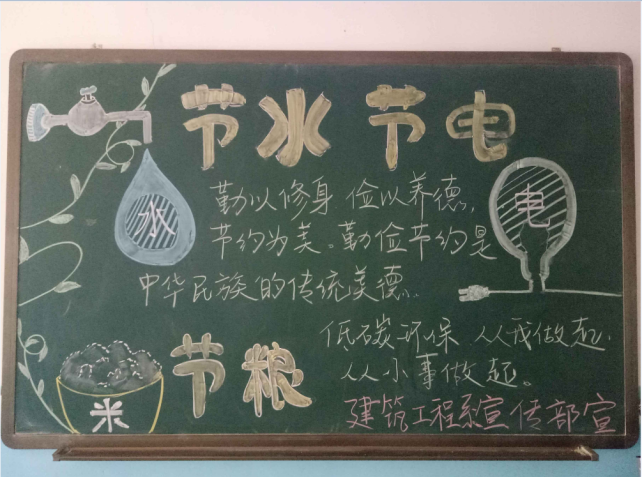 节水 节电
水
电
勤以修身 俭以养德,
节约为美。勤俭节约是
中华民族的传统美德.
节粮
米
低碳环保 从我做起.
从小事做起。
建筑工程系宣传部宣